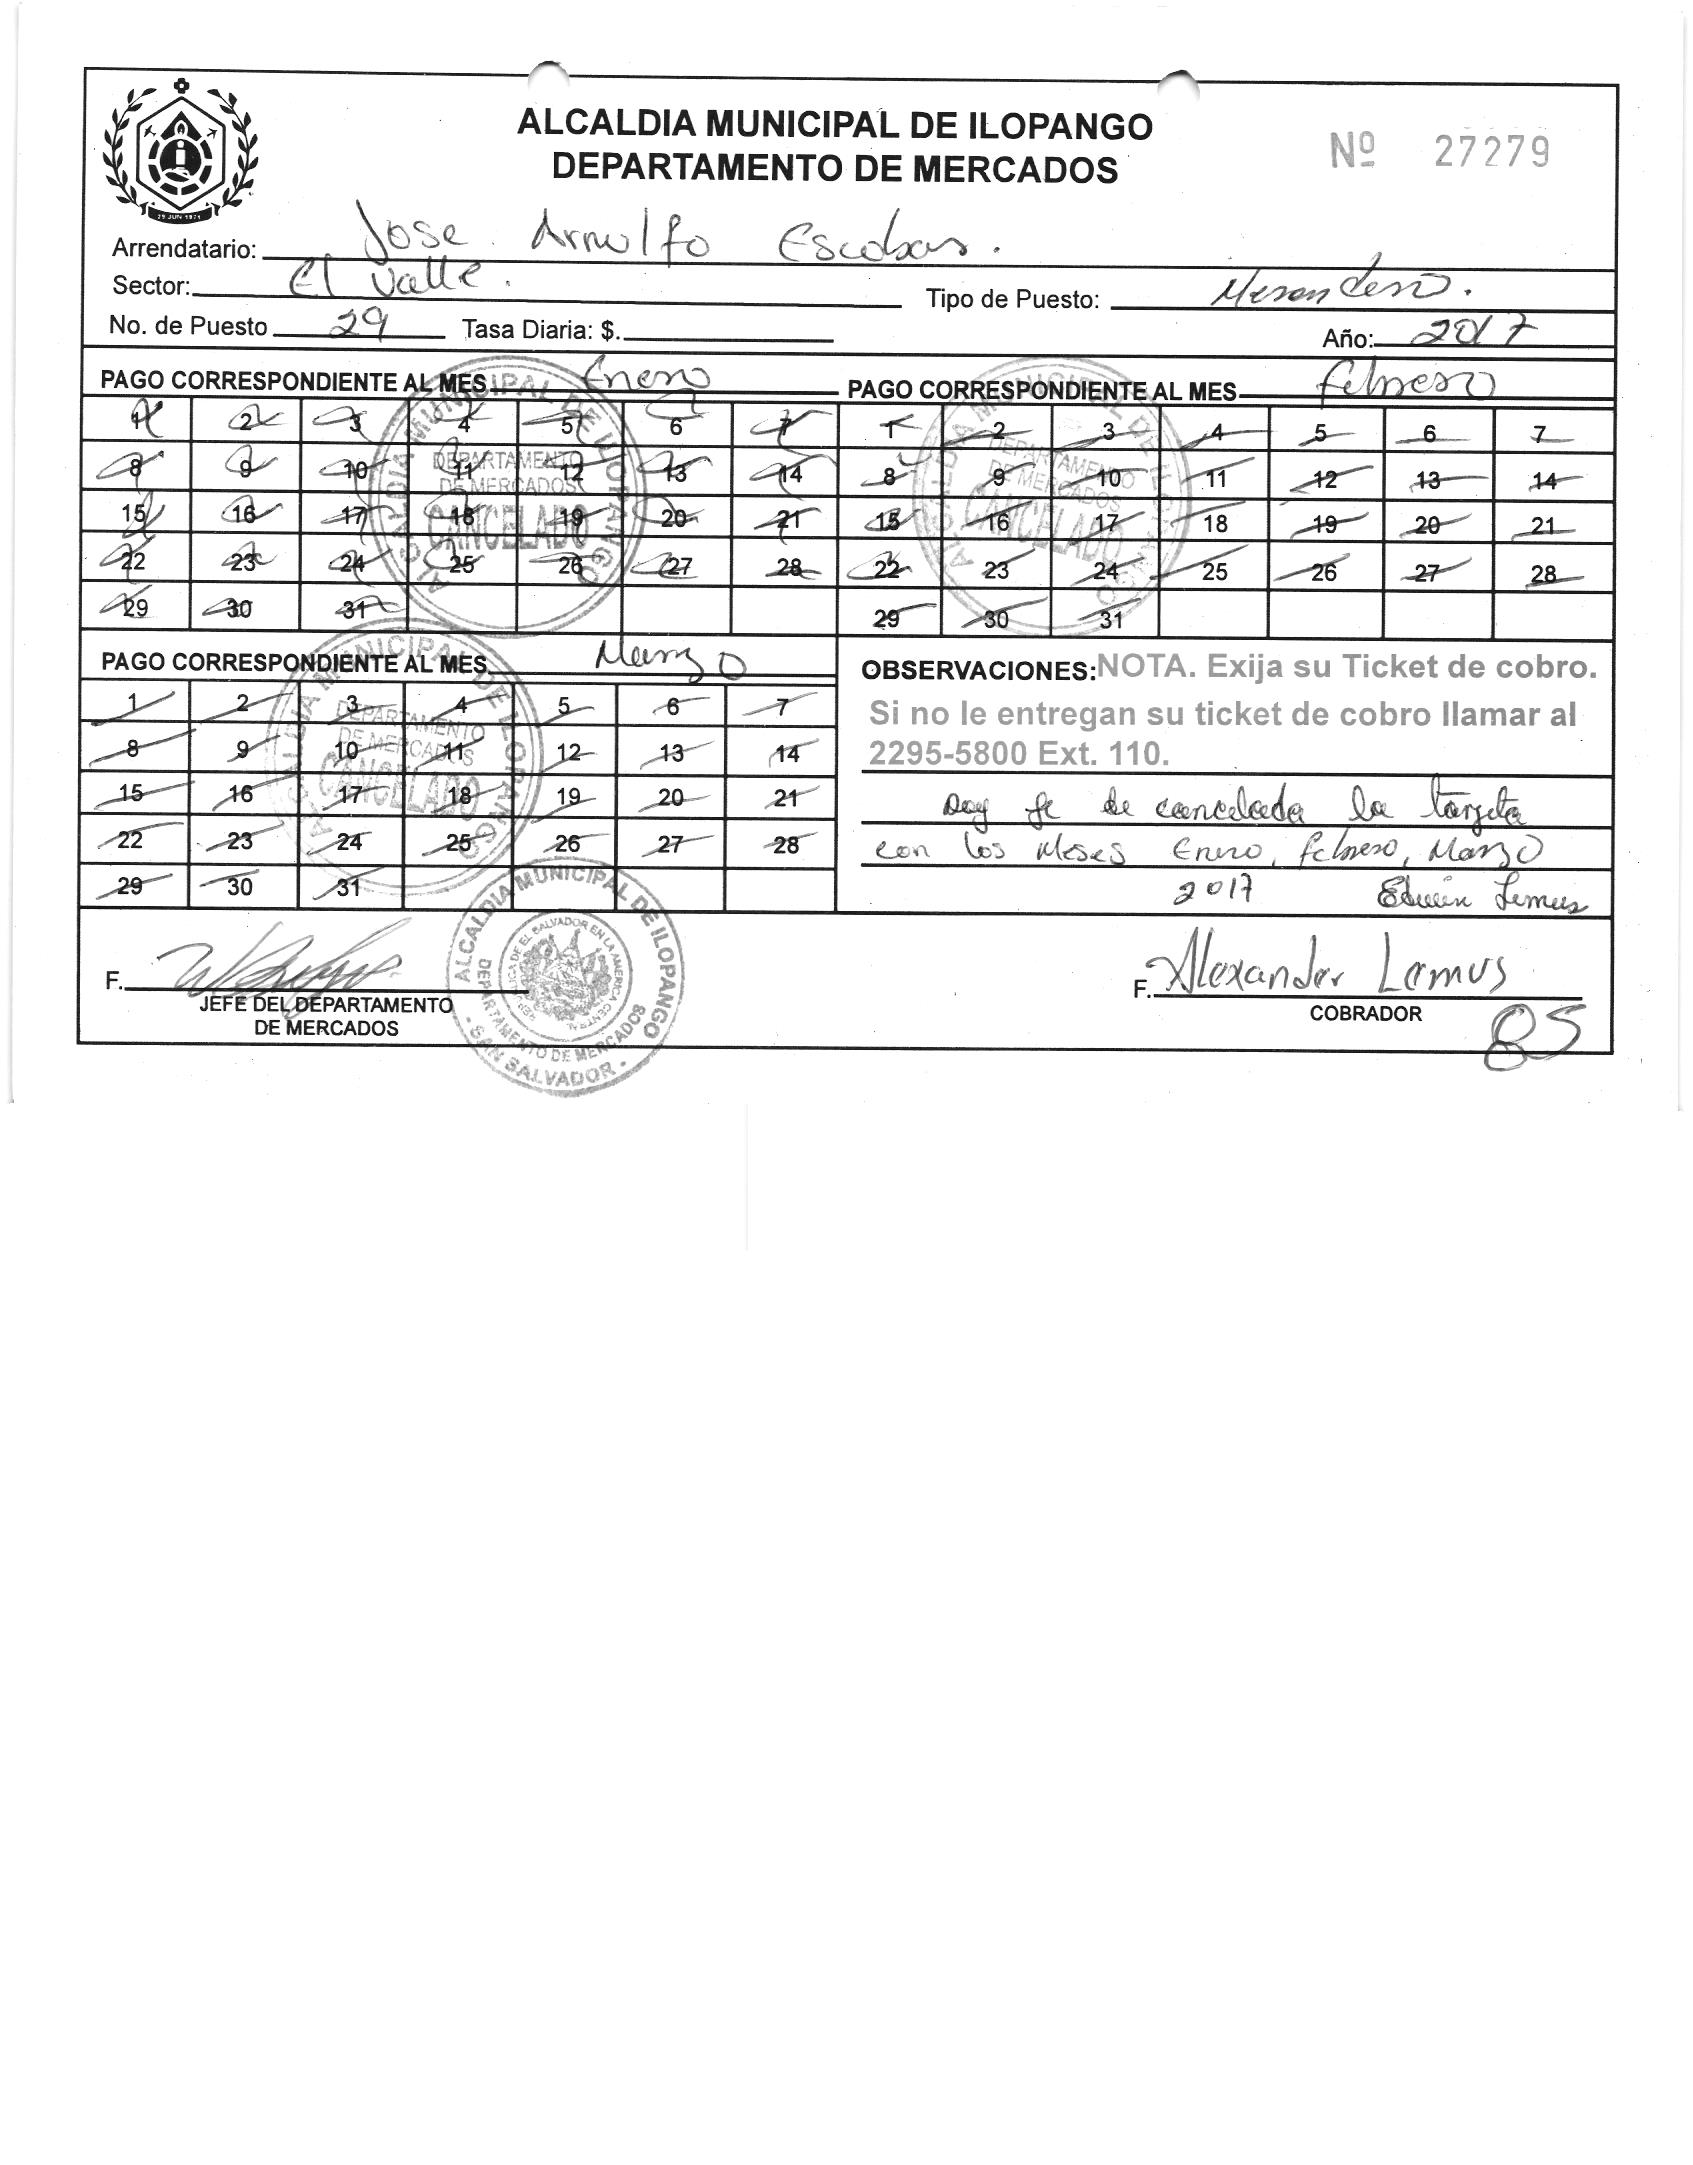 ALCALDIA MUNICIPAL DE ILOPANGO
DEPARTAMENTO DE MERCADOS
Nº 27279
29 JUN 1971
Arrendatario: Jose Arnulfo Escobar.
Sector: El Valle.
Tipo de Puesto: Merendero.
No. de Puesto 29 Tasa Diaria: $.
Año: 2017
PAGO CORRESPONDIENTE AL MES Enero
1 2 3 4 5 6 7
8 9 10 11 12 13 14
15 16 17 18 19 20 21
22 23 24 25 26 27 28
29 30 31
ALCALDIA MUNICIPAL DE ILOPANGO
DEPARTAMENTO
DE MERCADOS
CANCELADO
PAGO CORRESPONDIENTE AL MES Febrero
1 2 3 4 5 6 7
8 9 10 11 12 13 14
15 16 17 18 19 20 21
22 23 24 25 26 27 28
29 30 31
ALCALDIA MUNICIPAL DE ILOPANGO
DEPARTAMENTO
DE MERCADOS
CANCELADO
PAGO CORRESPONDIENTE AL MES Marzo
1 2 3 4 5 6 7
8 9 10 11 12 13 14
15 16 17 18 19 20 21
22 23 24 25 26 27 28
29 30 31
ALCALDIA MUNICIPAL DE ILOPANGO
DEPARTAMENTO
DE MERCADOS
CANCELADO
OBSERVACIONES: NOTA. Exija su Ticket de cobro.
Si no le entregan su ticket de cobro llamar al
2295-5800 Ext. 110.
Doy fe de cancelada la tarjeta
con los Meses Enero, febrero, Marzo
2017 Edwin Lemus
F.
JEFE DEL DEPARTAMENTO
DE MERCADOS
ALCALDIA MUNICIPAL DE ILOPANGO
DEPARTAMENTO DE MERCADOS
REPUBLICA DE EL SALVADOR EN LA AMERICA CENTRAL
- SAN SALVADOR -
F. Alexander Lemus
COBRADOR
85